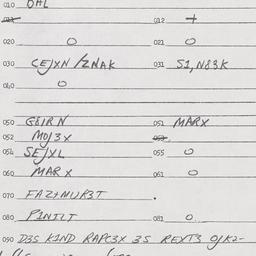 010 OHL
011 012 +
020 O 021 O
030 CEJXN/ZNAK 031 S1,N83K
040 O
050 G8IRN 051 MARX
052 MOJ3X 053
054 SEJXL 055 O
060 MARX 061 O
070 FAZ+NUR3T.
080 P1NTLT 081 O
090 D3S K1ND RAPC3X 3S REXT3 O/K2-